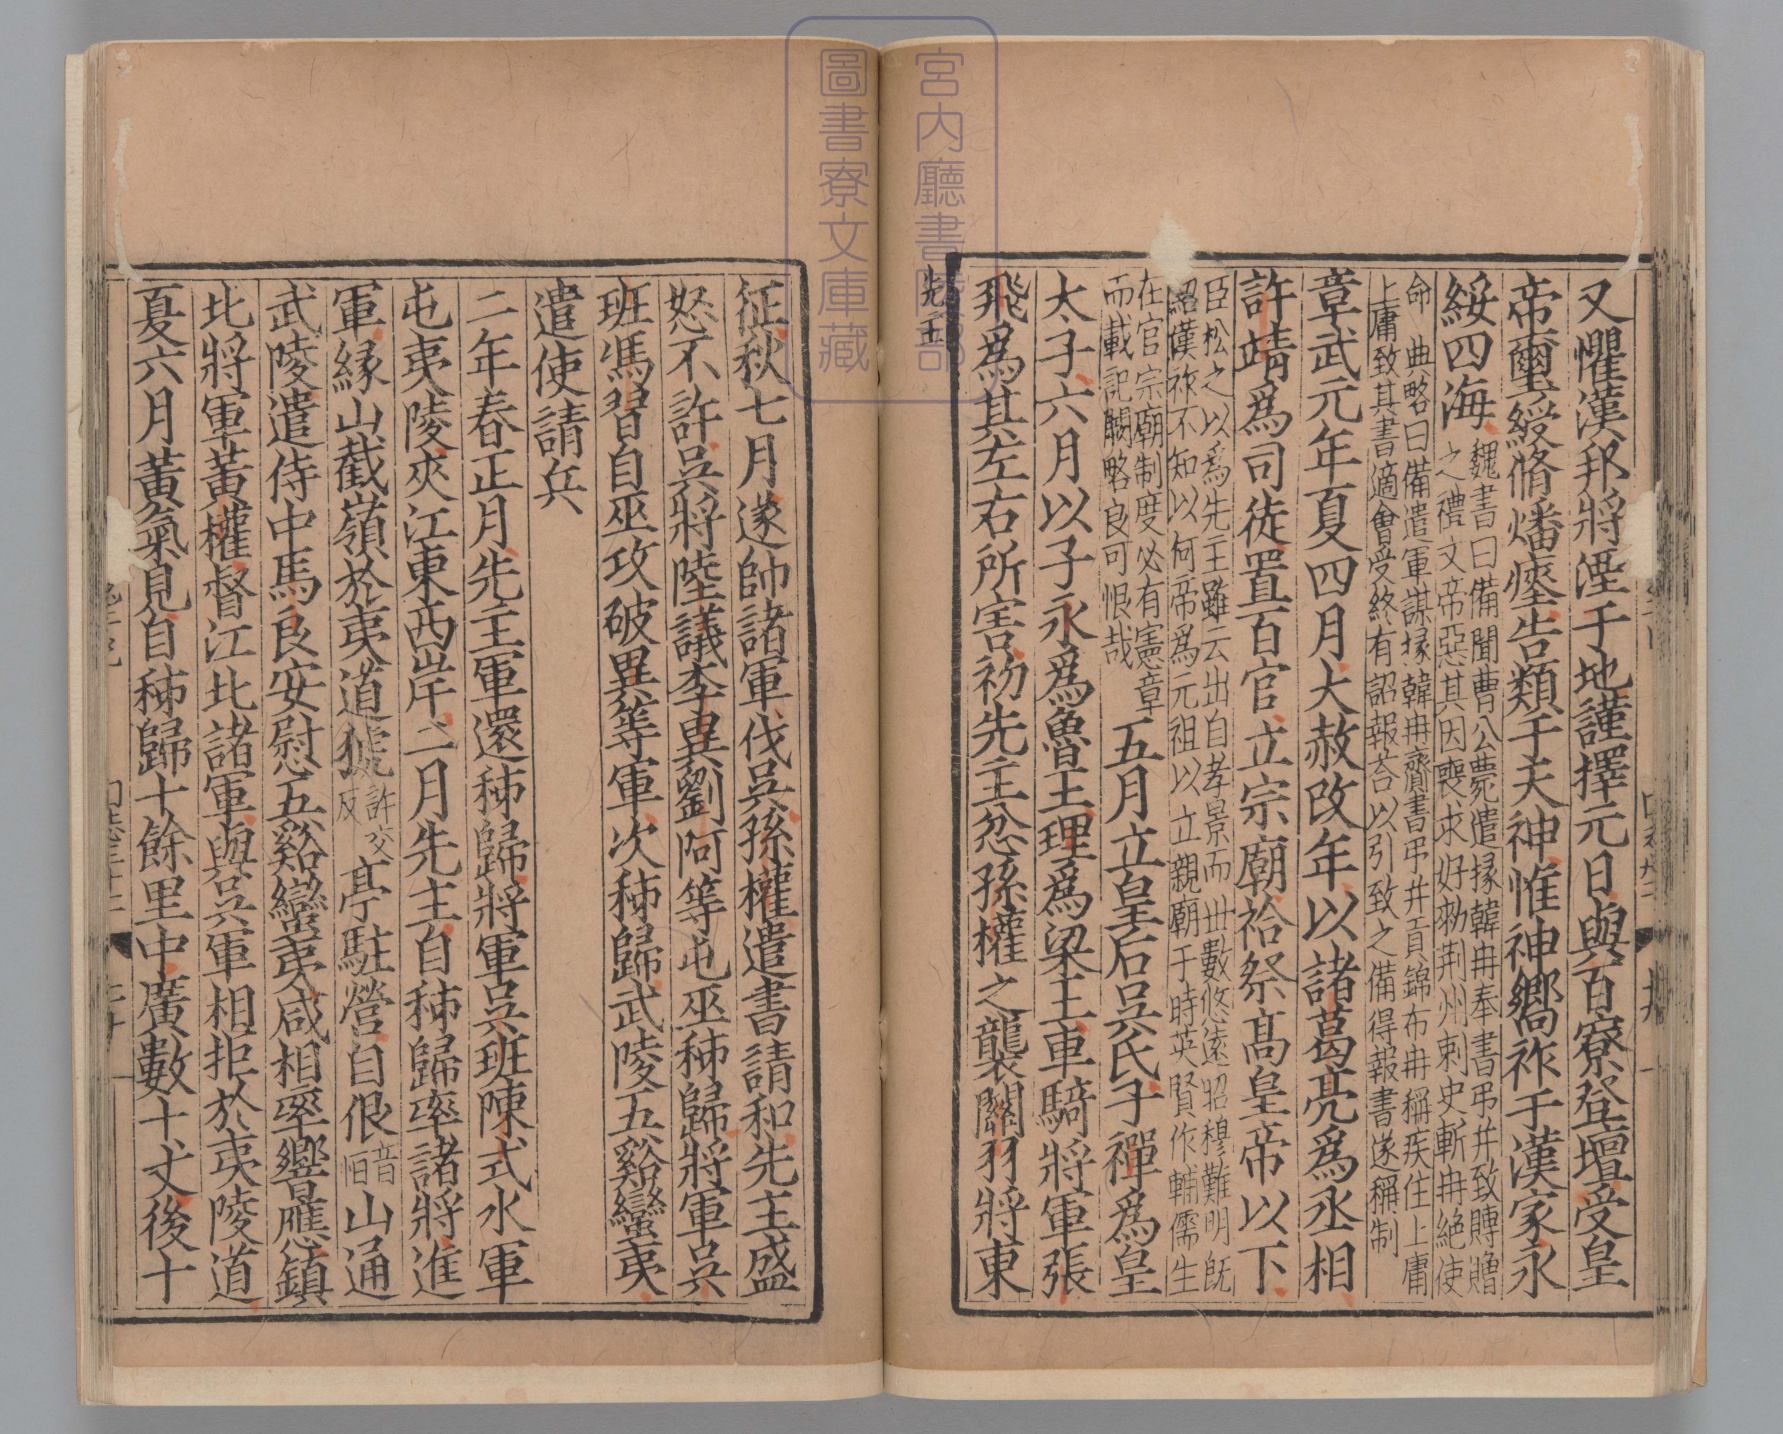 又懼漢邦將湮于地謹擇元日與百寮登壇受皇
帝璽綬脩燔瘞告類于天神惟神嚮祚于漢家永
綏四海
魏書曰備聞曹公薨遣掾韓冉奉書弔并致賻贈
之禮文帝惡其因喪求好勑荆州刺史斬冉絶使
命 典略曰備遣軍謀掾韓冉齎書弔并貢錦布冉稱疾住上庸
上庸致其書適會受終有詔報荅以引致之備得報書遂稱制
章武元年夏四月大赦改年以諸葛亮爲丞相
許靖爲司徒置百官立宗廟祫祭髙皇帝以下
臣松之以爲先主雖云出自孝景而丗數悠逺昭穆難明旣
紹漢祚不知以何帝爲元祖以立親廟于時英賢作輔儒生
在官宗廟制度必有憲章
而載記闕略良可恨哉
五月立皇后吳氏子禪爲皇
太子六月以子永爲魯王理爲梁王車騎將軍張
飛爲其左右所害初先主忿孫權之襲關羽將東
先主
征秋七月遂帥諸軍伐吳孫權遣書請和先主盛
怒不許吳將陸議李異劉阿等屯巫秭歸將軍吳
班馮習自巫攻破異等軍次秭歸武陵五谿蠻夷
遣使請兵
二年春正月先主軍還秭歸將軍吳班陳式水軍
屯夷陵夾江東西岸二月先主自秭歸率諸將進
軍緣山截嶺於夷道猇
許交
反
亭駐營自佷
音
恒
山通
武陵遣侍中馬良安慰五谿蠻夷咸相率響應鎮
北將軍黃權督江北諸軍與吳軍相拒於夷陵道
夏六月黃氣見自秭歸十餘里中廣數十丈後十
宮内廳書陵部
圖書寮文庫藏